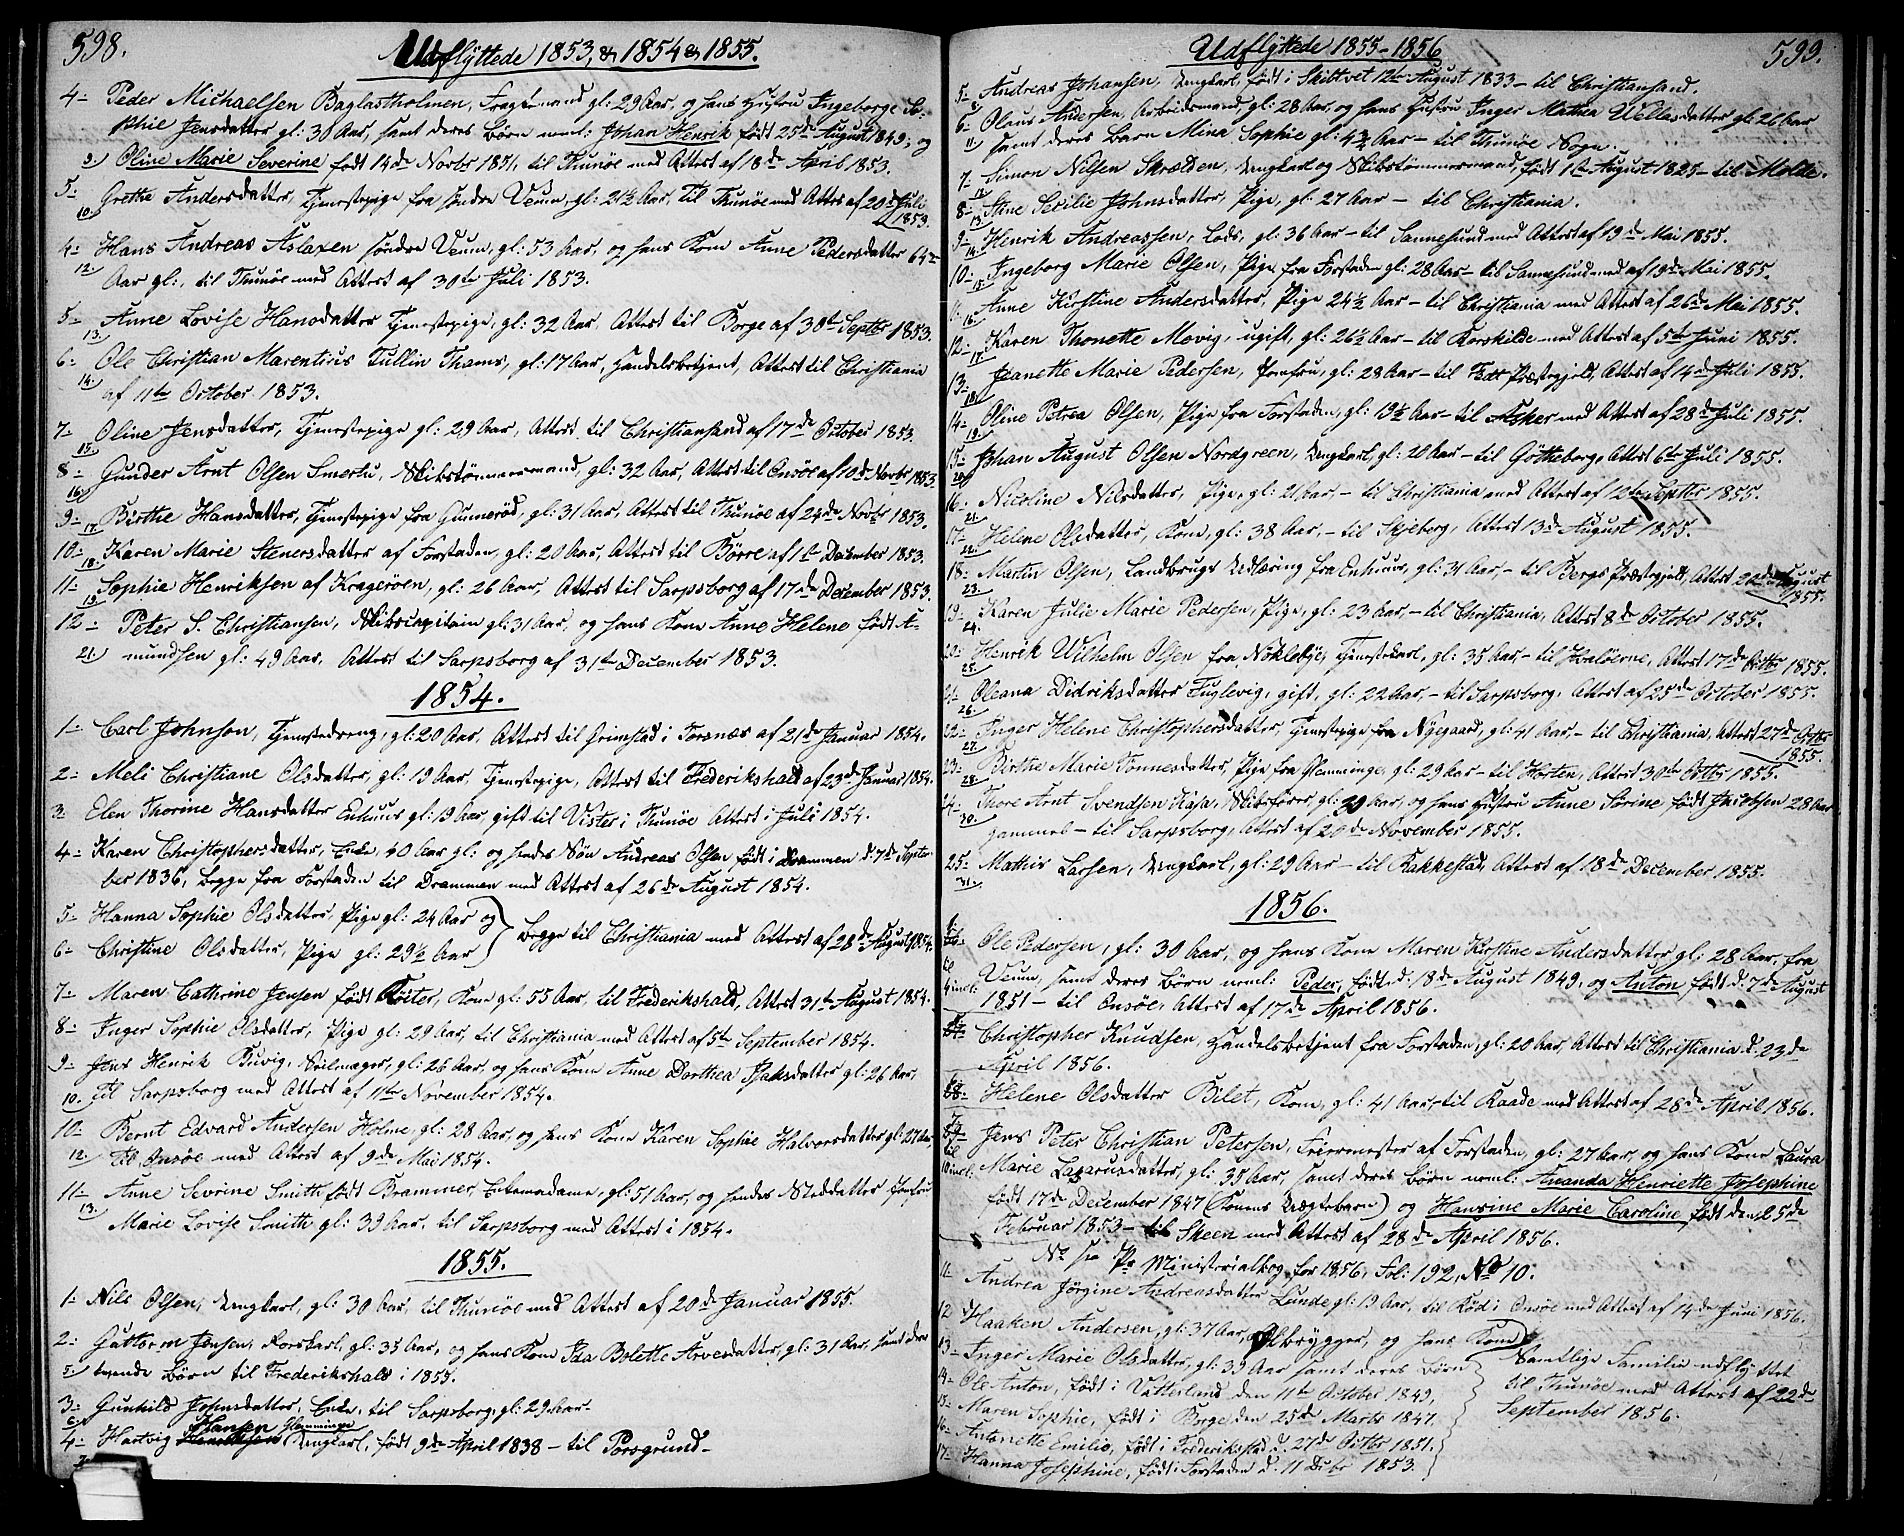 598.
Udflyttede 1853, & 1854 & 1855.
4- Peder Michaelsen Baglastholmen, Fragtemand gl: 29 Aar, og hans Hustru Ingeborg So-
phie Jensdatter gl: 30 Aar, samt deres Børn neml: Johan Henrik født 25de August 1849, og
9 Oline Marie Severine født 14de Novbr 1851, til Thunøe med Attest af 18de April 1853.
5- Grethe Andersdatter, Tjenestepige fra søndre Veum, gl: 21½ Aar, til Thunøe med Attest af 20de Juli
10. 1853.
4- Hans Andreas Aslaxen søndre Veum, gl: 53 Aar, og hans Kone Anne Pedersdatter 64
12. Aar gl:, til Thunøe med Attest af 30te Juli 1853.
5- Anne Lovise Hansdatter Tjenestepige, gl: 32 Aar, Attest til Borge af 30te Septbr 1853.
13.
6- Ole Christian Marentius Tullin Thams, gl: 17 Aar, Handelsbetjent, Attest til Christiania
14. af 11te October 1853.
7- Oline Jensdatter, Tjenestepige gl: 29 Aar, Attest til Christiansand af 17de October 1853.
15.
8- Gunder Arnt Olsen Smertu, Skibstømmermand, gl: 32 Aar, Attest til Onsøe af 10de Novbr 1853.
16.
9- Birthe Hansdatter, Tjenestepige fra Gunnerød, gl: 31 Aar, Attest til Thunøe af 24de Novbr 1853.
17.
10- Karen Marie Stenersdatter af Forstaden, gl: 20 Aar, Attest til Börre af 1ste December 1853.
18.
11- Sophie Henriksen af Kragerøen, gl: 26 Aar, Attest til Sarpsborg af 17de December 1853.
19.
12- Peter S. Christiansen, Skibscapitain gl: 31 Aar, og hans Kone Anne Helene født A-
21. mundsen gl: 49 Aar, Attest til Sarpsborg af 31te December 1853.
1854.
1- Carl Johnsen, Tjenestedreng, gl: 20 Aar, Attest til Grimstad i Torsnæs af 21de Januar 1854.
2- Meli Christiane Olsdatter, gl: 19 Aar, Tjenestepige, Attest til Frederikshald af 23de Januar 1854.
3. Elen Thorine Hansdatter Enhuus gl: 19 Aar, gift til Vister i Thunøe Attest i Juli 1854.
4- Karen Christophersdatter, Enke, 40 Aar gl: og hendes Søn Andreas Olsen født i Drammen d: 7de Septem-
ber 1836, begge fra Forstaden til Drammen med Attest af 26de August 1854.
5- Hanna Sophie Olsdatter, Pige gl: 24 Aar og
6- Christine Olsdatter, Pige gl: 29½ Aar } begge til Christiania med Attest af 28de August 1854.
7- Maren Cathrine Jensen født Köster, Kone gl: 55 Aar, til Frederikshald, Attest 31te August 1854.
8- Inger Sophie Olsdatter, Pige gl: 29 Aar, til Christiania med Attest af 5te September 1854.
9- Jens Henrik Buvig, Seilmager, gl: 26 Aar, og hans Kone Anne Dorthea Isaksdatter gl: 26 Aar,
10. til Sarpsborg med Attest af 11te November 1854.
10- Bernt Edvard Andersen Holme, gl: 28 Aar, og hans Kone Karen Sophie Halvorsdatter gl: 27 Aar
12. til Onsøe med Attest af 9de Mai 1854.
11- Anne Sevrine Smith født Brammer, Enkemadame, gl: 51 Aar, og hendes Steddatter Jomfru
13. Marie Lovise Smith gl: 39 Aar, til Sarpsborg med Attest i 1854.
1855.
1- Nils Olsen, Ungkarl, gl: 30 Aar, til Thunøe med Attest af 20de Januar 1855.
2- Guttorm Jensen, gl: 35 Aar, og hans Kone Ida Bolette Arvesdatter, gl: 31 Aar, samt deres
5. tvende Børn til Frederikshald i 1855.
3- Gunhild Johnsdatter, Enke, til Sarpsborg, gl: 29 Aar.
6. Hansen Glemminge
4- Hartvig Ungkarl, født 9de April 1838 - til Porsgrund-
7.
Udflyttede 1855-1856
599.
5- Andreas Johansen, Ungkarl, født i Skibtvet 12te August 1833 - til Christiansand.
8.
6- Olaus Andersen, Arbeidsmand, gl: 28 Aar, og hans Hustru Inger Mathea Wellasdatter gl: 26 Aar
11. samt deres Barn Mina Sophie gl: 4¾ Aar - til Thunøe Sogn.
7- Simon Nilsen Skrolsen, Ungkarl og Skibstømmermand, født 1ste August 1825 - til Molde.
12.
8- Stine Sesilie Johnsdatter, Pige, gl: 27 Aar - til Christiania.
13.
9- Henrik Andreassen, Lods, gl: 36 Aar - til Sannesund med Attest af 19de Mai 1855.
14.
10- Ingeborg Marie Olsen, Pige fra Forstaden gl: 28 Aar - til Sannesund med af 19de Mai 1855.
15.
11- Anne Kirstine Andersdatter, Pige 24½ Aar - til Christiania med Attest af 26de Mai 1855.
16.
12- Karen Thonette Movig, ugift, gl: 26½ Aar - til Korskilde med Attest af 5te Juni 1855.
17.
13- Jeanette Marie Pedersen, Jomfru, gl: 28 Aar - til Fedt Præstegjeld, Attest af 14de Juli 1855.
18.
14- Oline Petrea Olsen, Pige fra Forstaden, gl: 19½ Aar - til Asker med Attest af 28de Juli 1855.
19.
15- Johan August Olsen Nordgreen, Ungkarl, gl: 20 Aar - til Götheborg, Attest 6te Juli 1855.
20.
16- Nicoline Nilsdatter, Pige, gl: 21 Aar, - til Christiania med Attest af 12te Septbr 1855.
21.
17- Helene Olsdatter, Kone, gl: 38 Aar, - til Skjeberg, Attest 13de August 1855.
22.
18- Martin Olsen, Landbrugs Udlæring fra Enhuus, gl: 31 Aar, - til Bergs Præstegjeld, Attest 20de August
23. 1855.
19- Karen Julie Marie Pedersen, Pige, gl: 23 Aar, - til Christiania, Attest 8de October 1855.
24.
20- Henrik Wilhelm Olsen fra Nøkleby, Tjenestekarl, gl: 35 Aar, - til Hvaløerne, Attest 17de Octbr 1855.
25.
21- Oleana Didriksdatter Fuglevig, gift, gl: 22 Aar, - til Sarpsborg, Attest af 25de October 1855.
26.
22- Inger Helene Christophersdatter, Tjenestepige fra Nygaard, gl: 41 Aar, - til Christiania, Attest 27de Octbr
27. 1855.
23- Birthe Marie Tonnesdatter, Pige fra Glemminge, gl: 29 Aar - til Horten, Attest 30te Octbr 1855.
28.
24- Thore Arnt Svendsen Kasa, Skibsfører, gl: 29 Aar, og hans Hustru Anne Sørine født Jacobsen 28 Aar
30. gammel - til Sarpsborg, Attest af 20de November 1855.
25- Mathis Larsen, Ungkarl, gl: 29 Aar - til Rakkestad, Attest af 18de December 1855.
31.
1856.
Ole Pedersen, gl: 30 Aar, og hans Kone Maren Kirstine Andersdatter gl: 28 Aar, fra
til
4 incl: Veum, samt deres Børn neml: Peder, født d: 18de August 1849, og Anton født d: 7de August
1851 - til Onsøe, Attest af 17de April 1856.
Christopher Knudsen, Handelsbetjent fra Forstaden, gl: 20 Aar, Attest til Christiania d: 23de
April 1856.
Helene Olsdatter Bilet, Kone, gl: 41 Aar, - til Raade med Attest af 28de April 1856.
7-
til Jens Peter Christian Petersen, Feiermester af Forstaden, gl: 27 Aar, og hans Kone Laura
10 incl. Marie Lazarusdatter, gl: 35 Aar, samt deres Børn neml: Ananda Henriette Josephine
født 17de December 1847 (Konens Uægtebarn) og Hansine Marie Caroline født den 25de
Februar 1853 - til Skeen med Attest af 28de April 1856.
Ministerialbog for 1856, Fol: 192, No 10.
11- Andrea Jörgine Andreasdatter Lunde gl: 19 Aar, til Röd i Onsøe med Attest af 14de Juni 1856.
12 Haaken Andersen, gl: 37 Aar, Ølbrygger, og hans Kone
13- Inger Marie Olsdatter, gl: 39 Aar samt deres Børn
14- Ole Anton, født i Vatterland den 11te October 1849,
15- Maren Sophie, født i Borge den 25de Marts 1847.
16- Antonette Emilie, født i Frederikstad d. 27de Octbr 1851.
17- Hanna Josephine, født i Forstaden d: 11 Decbr 1853.
Samtlige Familie udflyttet
til Thunøe med Attest af 22de
September 1856.